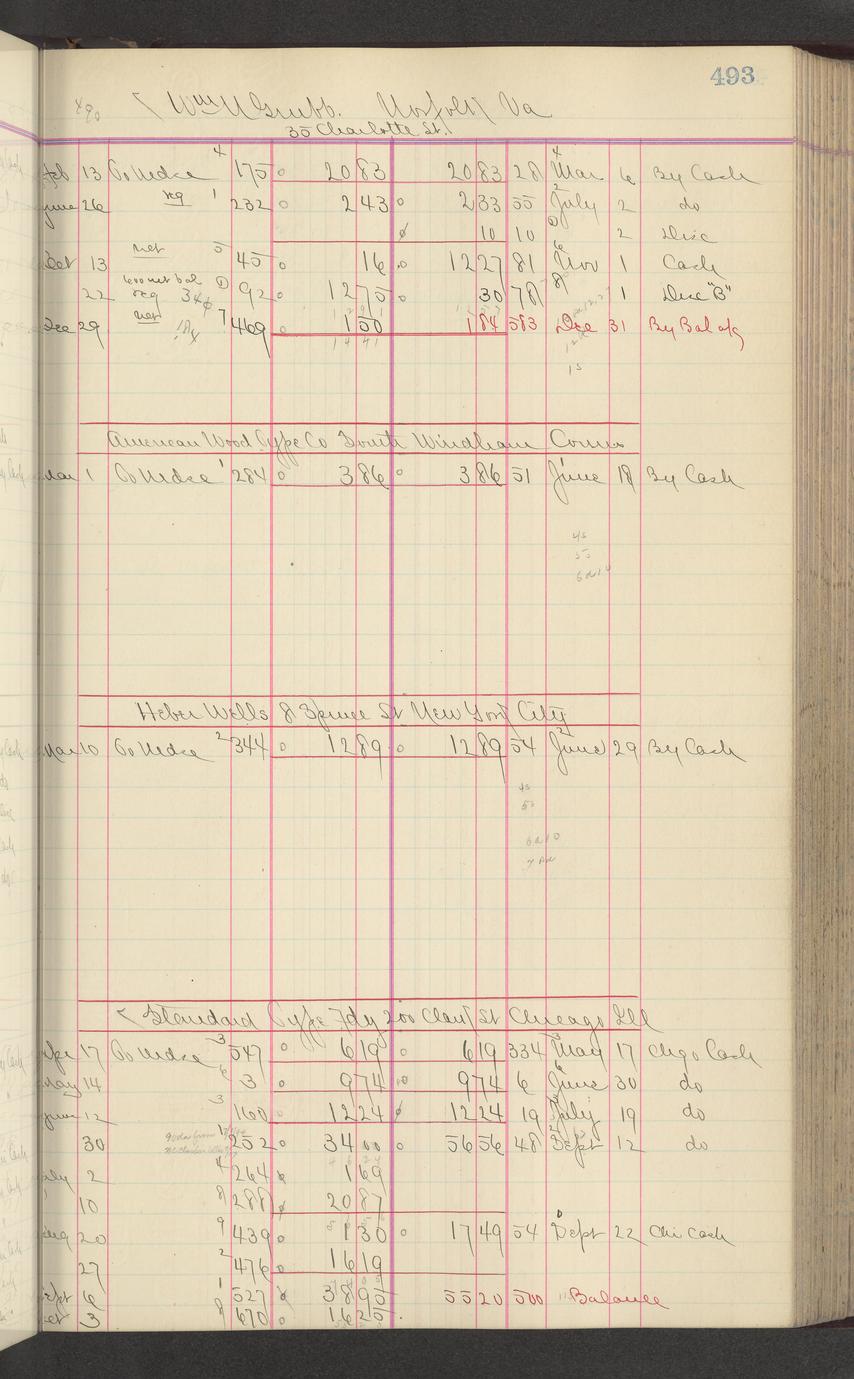 493
490 Wm U Grubb. Norfolk Va
35 Charlotte St.
Feb 13 To Mdse 4 175 20 83 20 83 28 Mar 6 By Cash
June 26 reg 1 232 2 43 2 33 55 July 2 do
10 10 2 Disc
Oct 13 net 5 45 16 12 27 81 Nov 1 Cash
22 600 net bal reg 34¢ 92 12 75 30 78 1 Disc "B"
Dec 29 net 184 7 469 1 50 1 84 583 Dec 31 By Bal a/c
1 4 41
15
American Wood Type Co South Windham Conn
Mar 1 To Mdse 1 284 3 86 3 86 51 June 18 By Cash
45
55
6
Heber Wells 8 Spruce St New York City
Mar 10 To Mdse 2 344 12 89 12 89 54 June 29 By Cash
45
55
Standard Type Fdy 200 Clark St Chicago Ill
Apr 17 To Mdse 3 547 6 19 6 19 334 May 17 Chgo Cash
May 14 6 3 9 74 9 74 6 June 30 do
June 12 3 160 12 24 12 24 19 July 19 do
30 1 252 34 00 56 56 48 Sept 12 do
July 2 4 264 1 69
10 8 288 20 87
Aug 20 9 439 1 30 17 49 54 Sept 22 Chi Cash
27 2 476 16 19
Sept 6 1 527 38 95 55 20 500 Balance
Oct 3 8 670 16 25